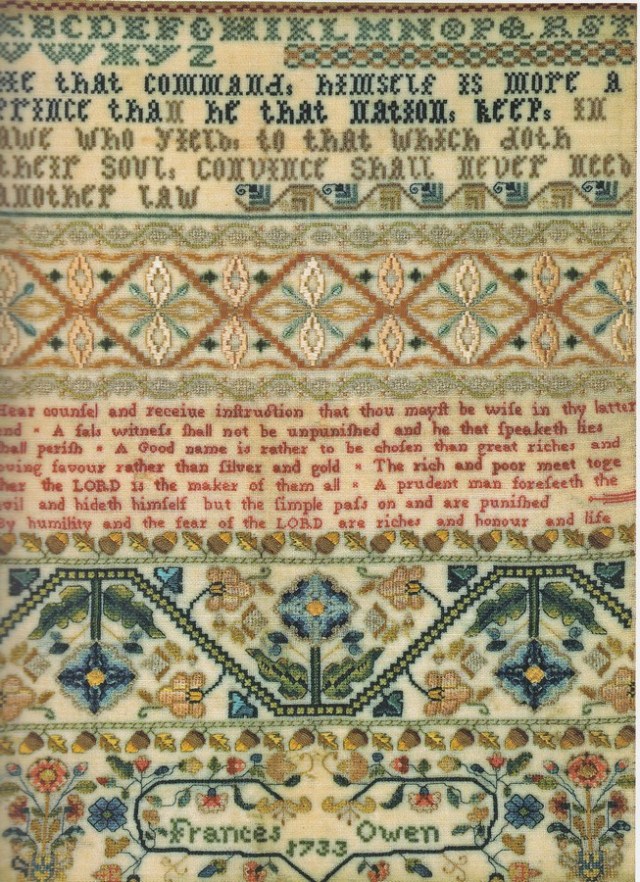 ABCDEFGHIKLMNOPQRST
VWXYZ
He that commands himself is more a
Prince than he that nations keeps in
awe who yields to that which doth
their souls convince shall never need
another law
Hear counſel and receiue inſtruction that thou mayſt be wiſe in thy latter
end * A fals witneſs ſhall not be unpuniſhed and he that ſpeaketh lies
ſhall periſh * A Good name is rather to be choſen than great riches and
loving favour rather than ſilver and gold * The rich and poor meet toge
ther the LORD is the maker of them all * A prudent man foreſeeth the
evil and hideth himſelf but the ſimple paſs on and are puniſhed
By humility and the fear of the LORD are riches and honour and life
Frances Owen
1733